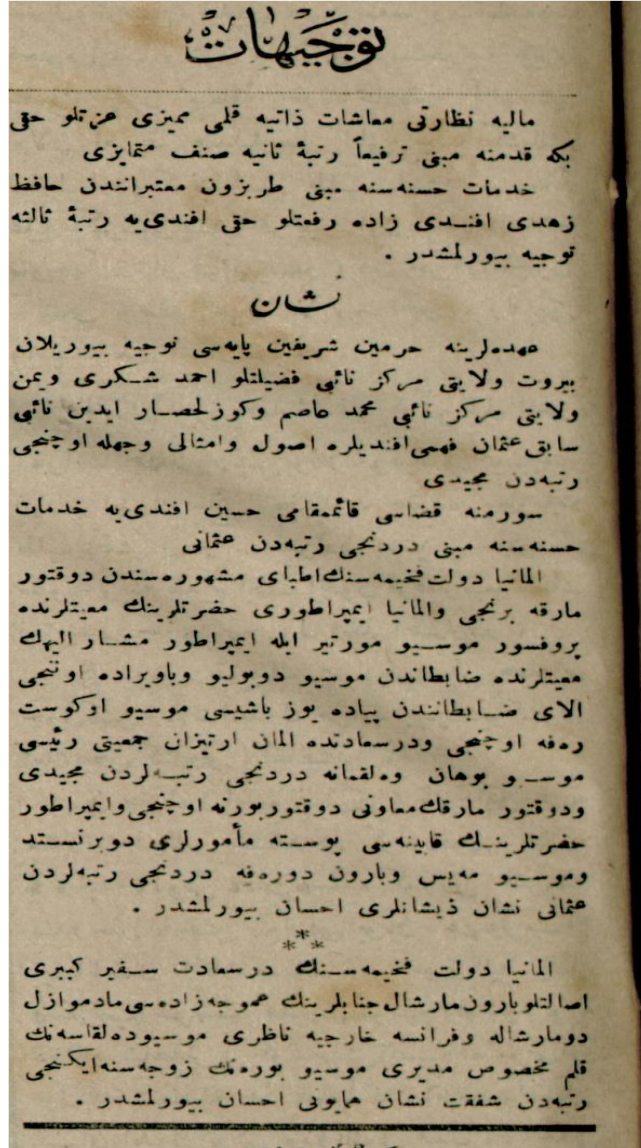 توجيهات
ماليه نظارتى معاشات ذاتيه قلمى مميزى عزتلو حقى
بكه قدمنه مبنى ترفيعاً رتبهٔ ثانيه صنف متمايزى
خدمات حسنه‌سنه مبنى طربزون معتبرانندن حافظ
زهدى افندى زاده رفعتلو حقى افندى‌يه رتبهٔ ثالثه
توجيه بيورلمشدر .
نشان
عهده‌لرينه حرمين شريفين پايه‌سى توجيه بيوريلان
بيروت ولايتى مركز نائبى فضيلتلو احمد شكرى ويمن
ولايتى مركز نائبى محمد عاصم وكوزلحصار ايدين نائبى
سابق عثمان فهمى افنديلره اصول وامثالى وجهله اوچنجى
رتبه‌دن مجيدى
سورمنه قضاسى قائممقامى حسين افندى‌يه خدمات
حسنه‌سنه مبنى دردنجى رتبه‌دن عثمانى
المانيا دولت فخيمه‌سنك اطباى مشهوره‌سندن دوقتور
مارقه برنجى والمانيا ايمپراطورى حضرتلرينك معيتلرنده
پروفسور موسيو مورتير ايله ايمپراطور مشار اليهك
معيتلرنده ضابطاندن موسيو دوبوليو وباويراده اوننجى
الاى ضابطانندن پياده يوز باشيسى موسيو اوكوست
ره‌فه اوچنجى ودرسعادتده المان ارتيزان جمعيتى رئيسى
موسيو بوهان وه‌لقمانه دردنجى رتبه‌لردن مجيدى
ودوقتور مارقك معاونى دوقتور بورنه اوچنجى وايمپراطور
حضرتلرينك قابينه‌سى پوسته مأمورلرى دوبرنستد
وموسيو مه‌يس وبارون دوره‌فه دردنجى رتبه‌لردن
عثمانى نشان ذيشانلرى احسان بيورلمشدر .
***
المانيا دولت فخيمه‌سنك درسعادت سفير كبيرى
اصالتلو بارون مارشال جنابلرينك عموجه‌زاده‌سى مادموازل
دومارشاله وفرانسه خارجيه ناظرى موسيو ده‌لقاسه‌نك
قلم مخصوص مديرى موسيو بوره‌نك زوجه‌سنه ايكنجى
رتبه‌دن شفقت نشان همايونى احسان بيورلمشدر .